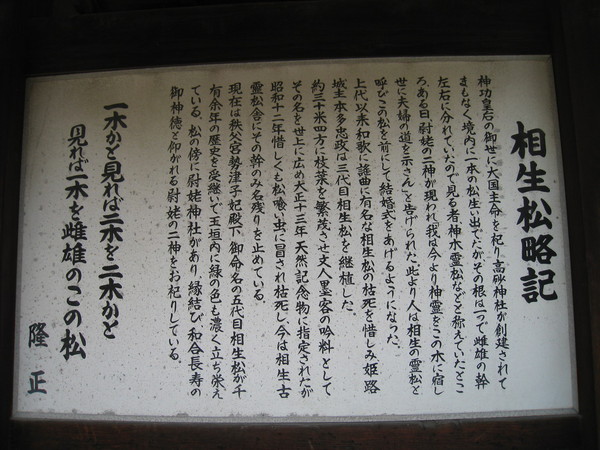 相生松略記
神功皇后の御世に大国主命を祀り高砂神社が創建されて
まもなく境内に一本の松生い出でたがその根は一つで雌雄の幹
左右に分れていたので見る者神木霊松などと称えていたとこ
ろ、ある日、尉姥の二神が現われ「我は今より神霊をこの木に宿し
世に夫婦の道を示さん」と告げられた。此より人は相生の霊松と
呼びこの松を前にして結婚式をあげるようになった。
上代以来和歌に謡曲に有名な相生松の枯死を惜しみ姫路
城主本多忠政は三代目相生松を継植した。
約三十米四方に枝葉を繁茂させ文人墨客の吟料として
その名を世上に広め大正十三年天然記念物に指定されたが
昭和十二年惜しくも松喰い虫に冒され枯死し、今は相生古
霊松舎にその幹のみ名残りを止めている。
現在は秩父宮勢津子妃殿下御命名の五代目相生松が千
有余年の歴史を受継いで玉垣内に緑の色も濃く立ち栄え
ている。松の傍に尉姥神社があり、縁結び和合長寿の
御神徳と仰がれる尉姥の二神をお祀りしている。
一木かと見れば二木を二木かと
見れば一木を雌雄のこの松
隆正